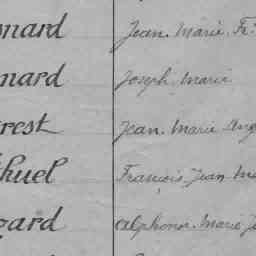 onard Jean Marie Fr.
nard Joseph Marie
rest Jean Marie Ang
huel François Jean Ma
gard Alphonse Marie J